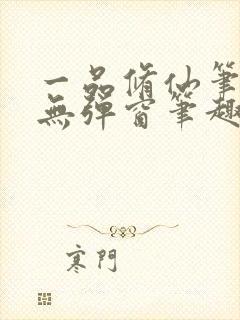 一品脩仙筆
無彈窗筆趣
寒門